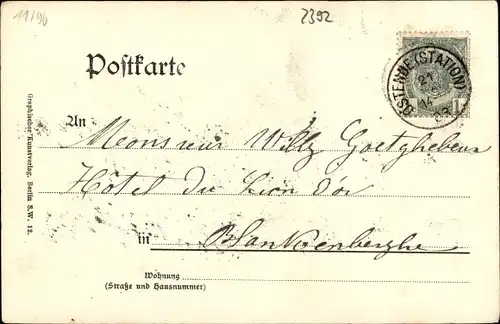 11/96
2392
Postkarte
OSTENDE (STATION)
21
14
1
An Monsieur Willy Goetghebeur
Hôtel du Lion d'or
in Blankenberghe
Wohnung
(Straße und Hausnummer)
Graphischer Kunstverlag, Berlin S.W. 12.